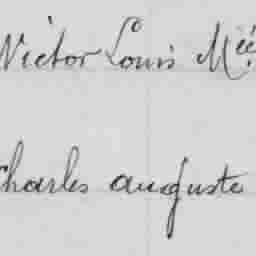 Victor Louis Méé
Charles auguste